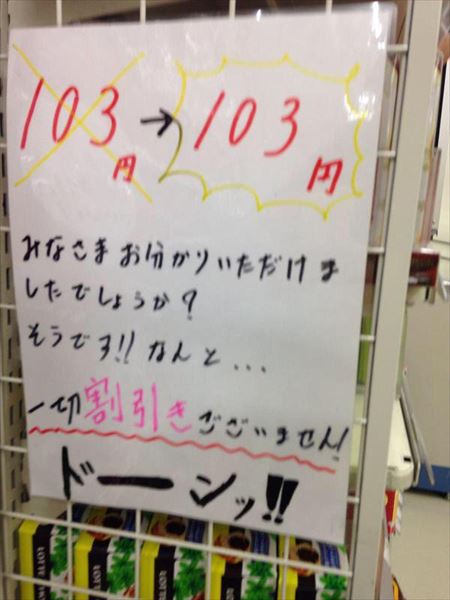 103円→103円
みなさまお分かりいただけま
したでしょうか?
そうです!!なんと...
一切割引きございません!
ドーンッ!!
LOTTE